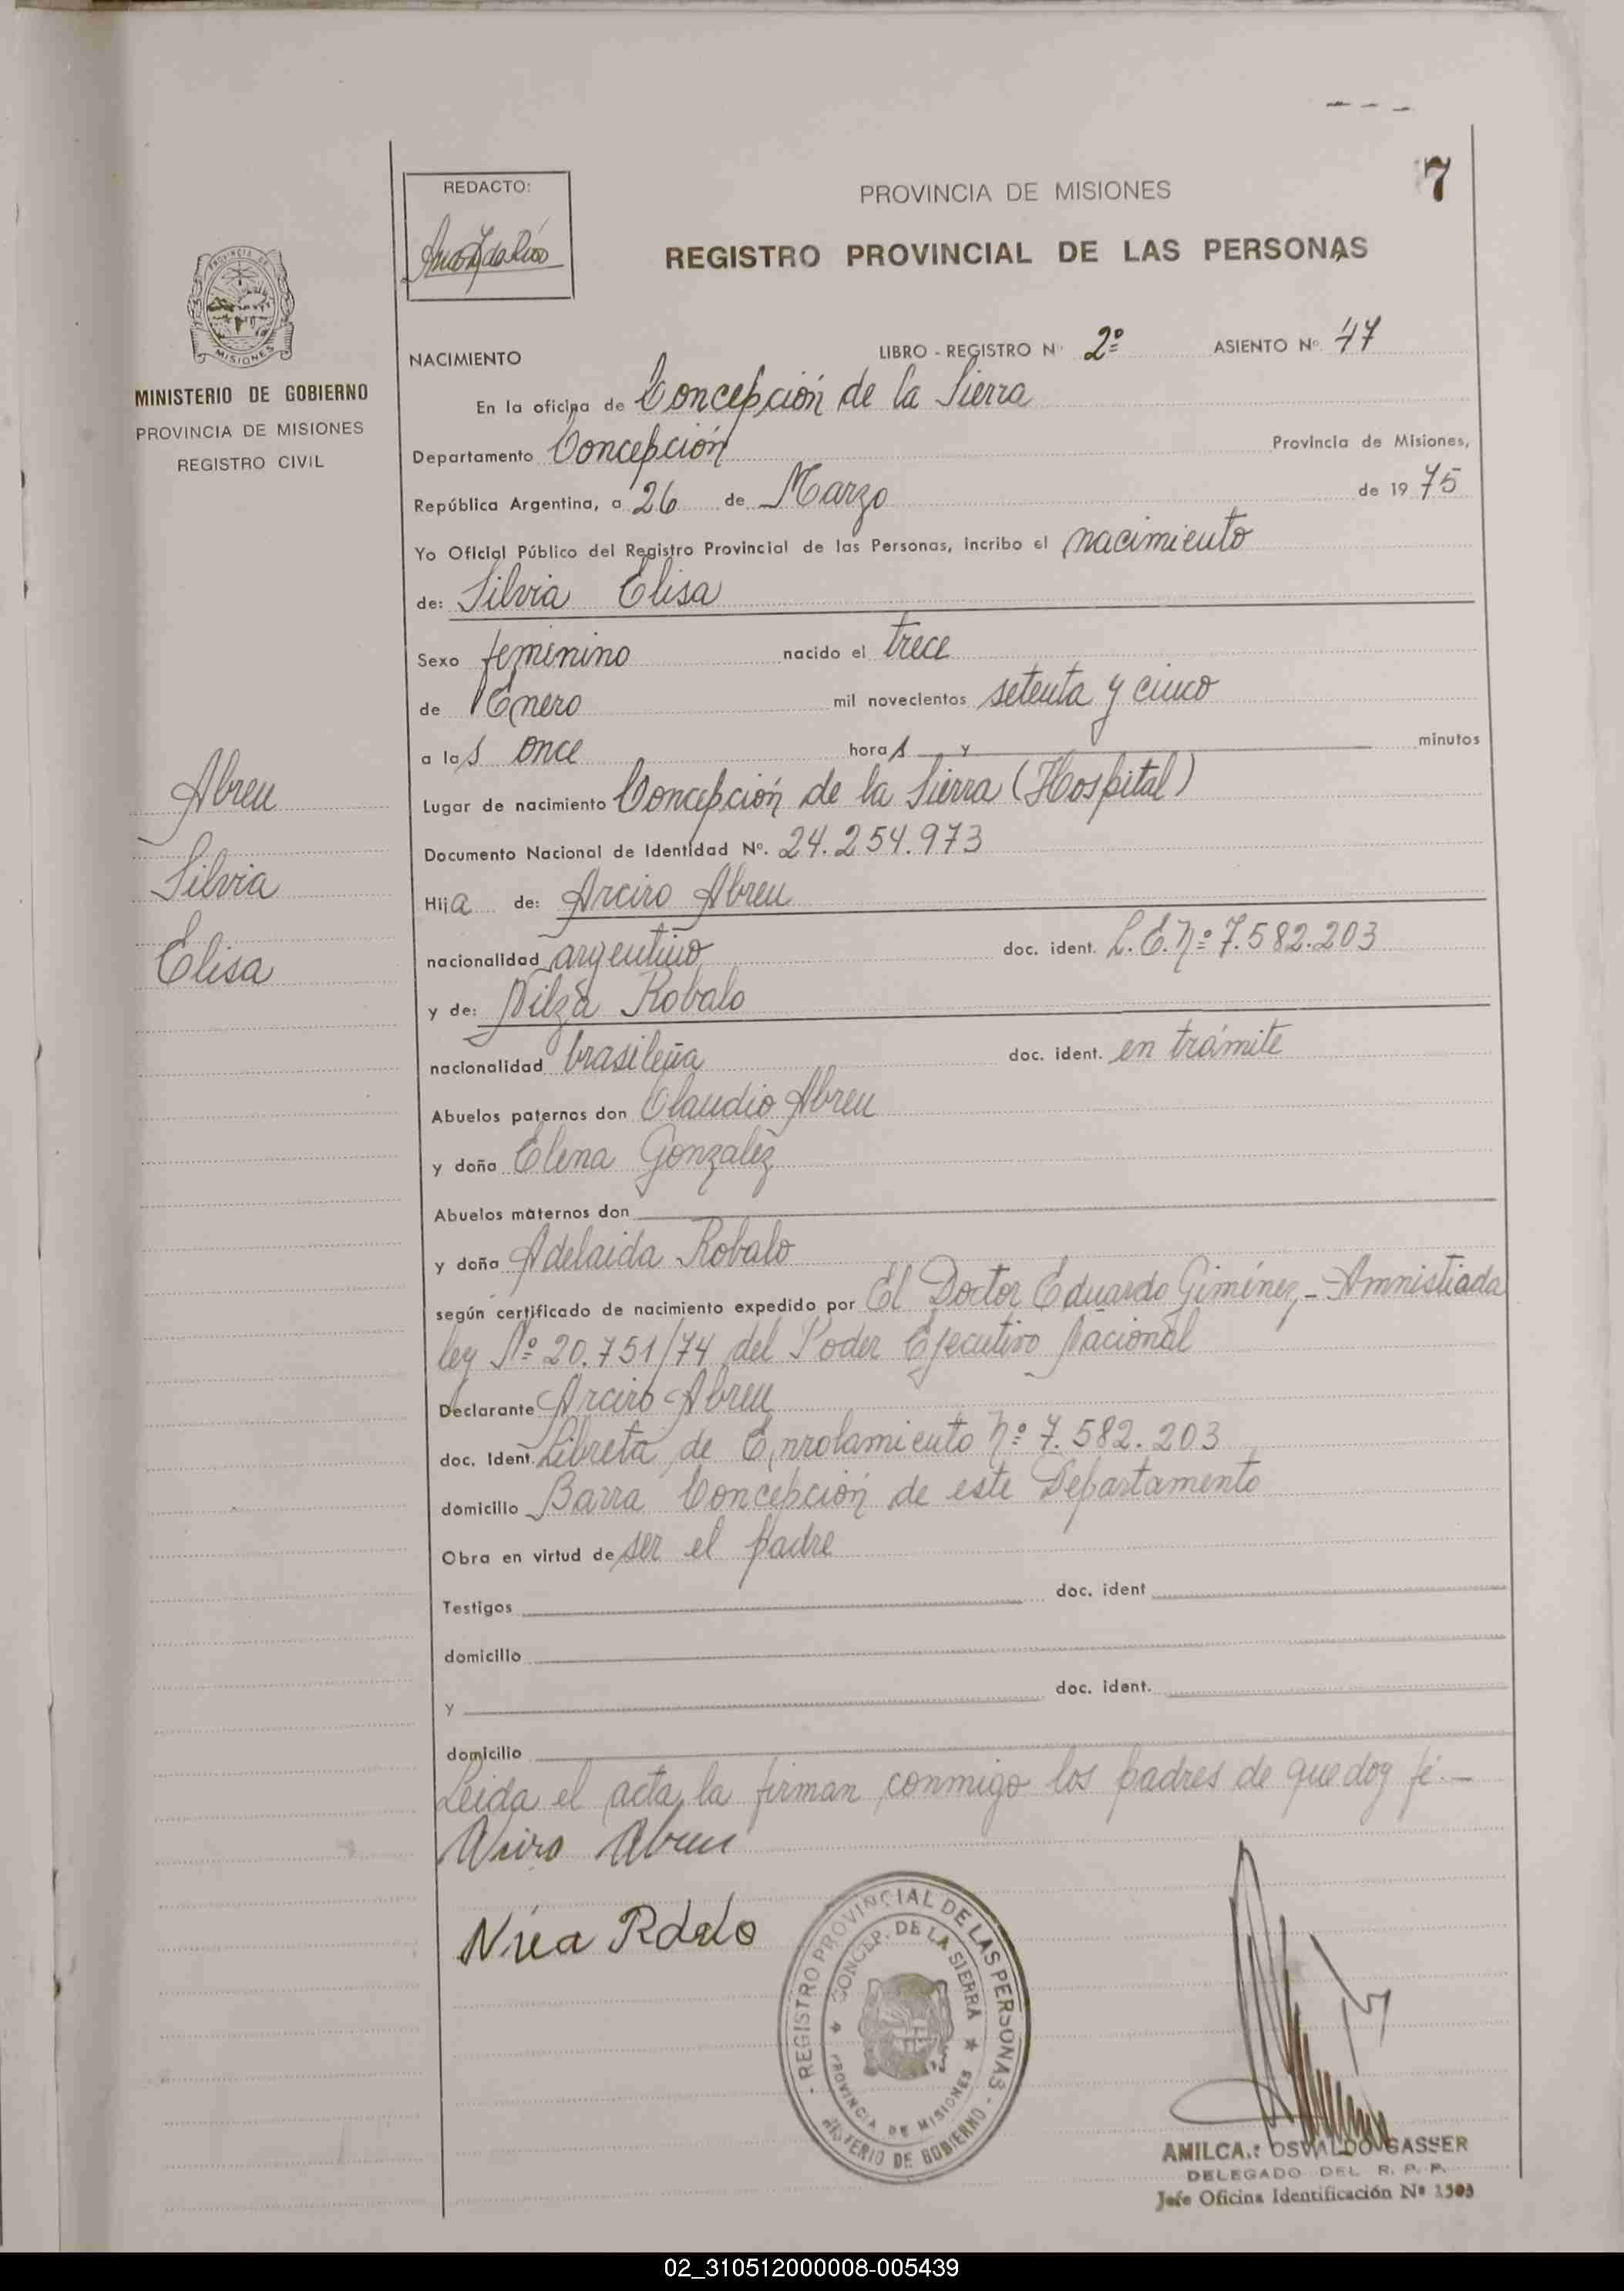 7
REDACTO:
PROVINCIA DE MISIONES
REGISTRO PROVINCIAL DE LAS PERSONAS
PROVINCIA DE
MISIONES
MINISTERIO DE GOBIERNO
PROVINCIA DE MISIONES
REGISTRO CIVIL
NACIMIENTO LIBRO - REGISTRO Nº 2º ASIENTO Nº 47
En la oficina de Concepción de la Sierra
Departamento Concepción Provincia de Misiones,
República Argentina, a 26 de Marzo de 19 75
Yo Oficial Público del Registro Provincial de las Personas, incribo el nacimiento
de: Silvia Elisa
Sexo femenino nacido el trece
de Enero mil novecientos setenta y cinco
a las once horas y minutos
Lugar de nacimiento Concepción de la Sierra (Hospital)
Documento Nacional de Identidad Nº. 24.254.973
Hija de: Arciro Abreu
nacionalidad argentino doc. ident. L.E.Nº 7.582.203
y de: Nilza Robalo
nacionalidad brasileña doc. ident. en trámite
Abuelos paternos don Claudio Abreu
y doña Elena Gonzalez
Abuelos maternos don
y doña Adelaida Robalo
según certificado de nacimiento expedido por El Doctor Eduardo Giménez,- Amnistiada
ley Nº 20.751/74 del Poder Ejecutivo Nacional
Declarante Arciro Abreu
doc. Ident. Libreta de Enrolamiento Nº 7.582.203
domicilio Barra Concepción de este Departamento
Obra en virtud de ser el padre
Testigos doc. ident
domicilio
y doc. ident.
domicilio
Leida el acta, la firman conmigo los padres de que doy fé.-
Abreu
Silvia
Elisa
Abreu
REGISTRO PROVINCIAL DE LAS PERSONAS
CONCEP. DE LA SIERRA
PROVINCIA DE MISIONES
MINISTERIO DE GOBIERNO
AMILCAR OSVALDO GASSER
DELEGADO DEL R. P. P.
Jefe Oficina Identificación Nº 1503
02_310512000008-005439